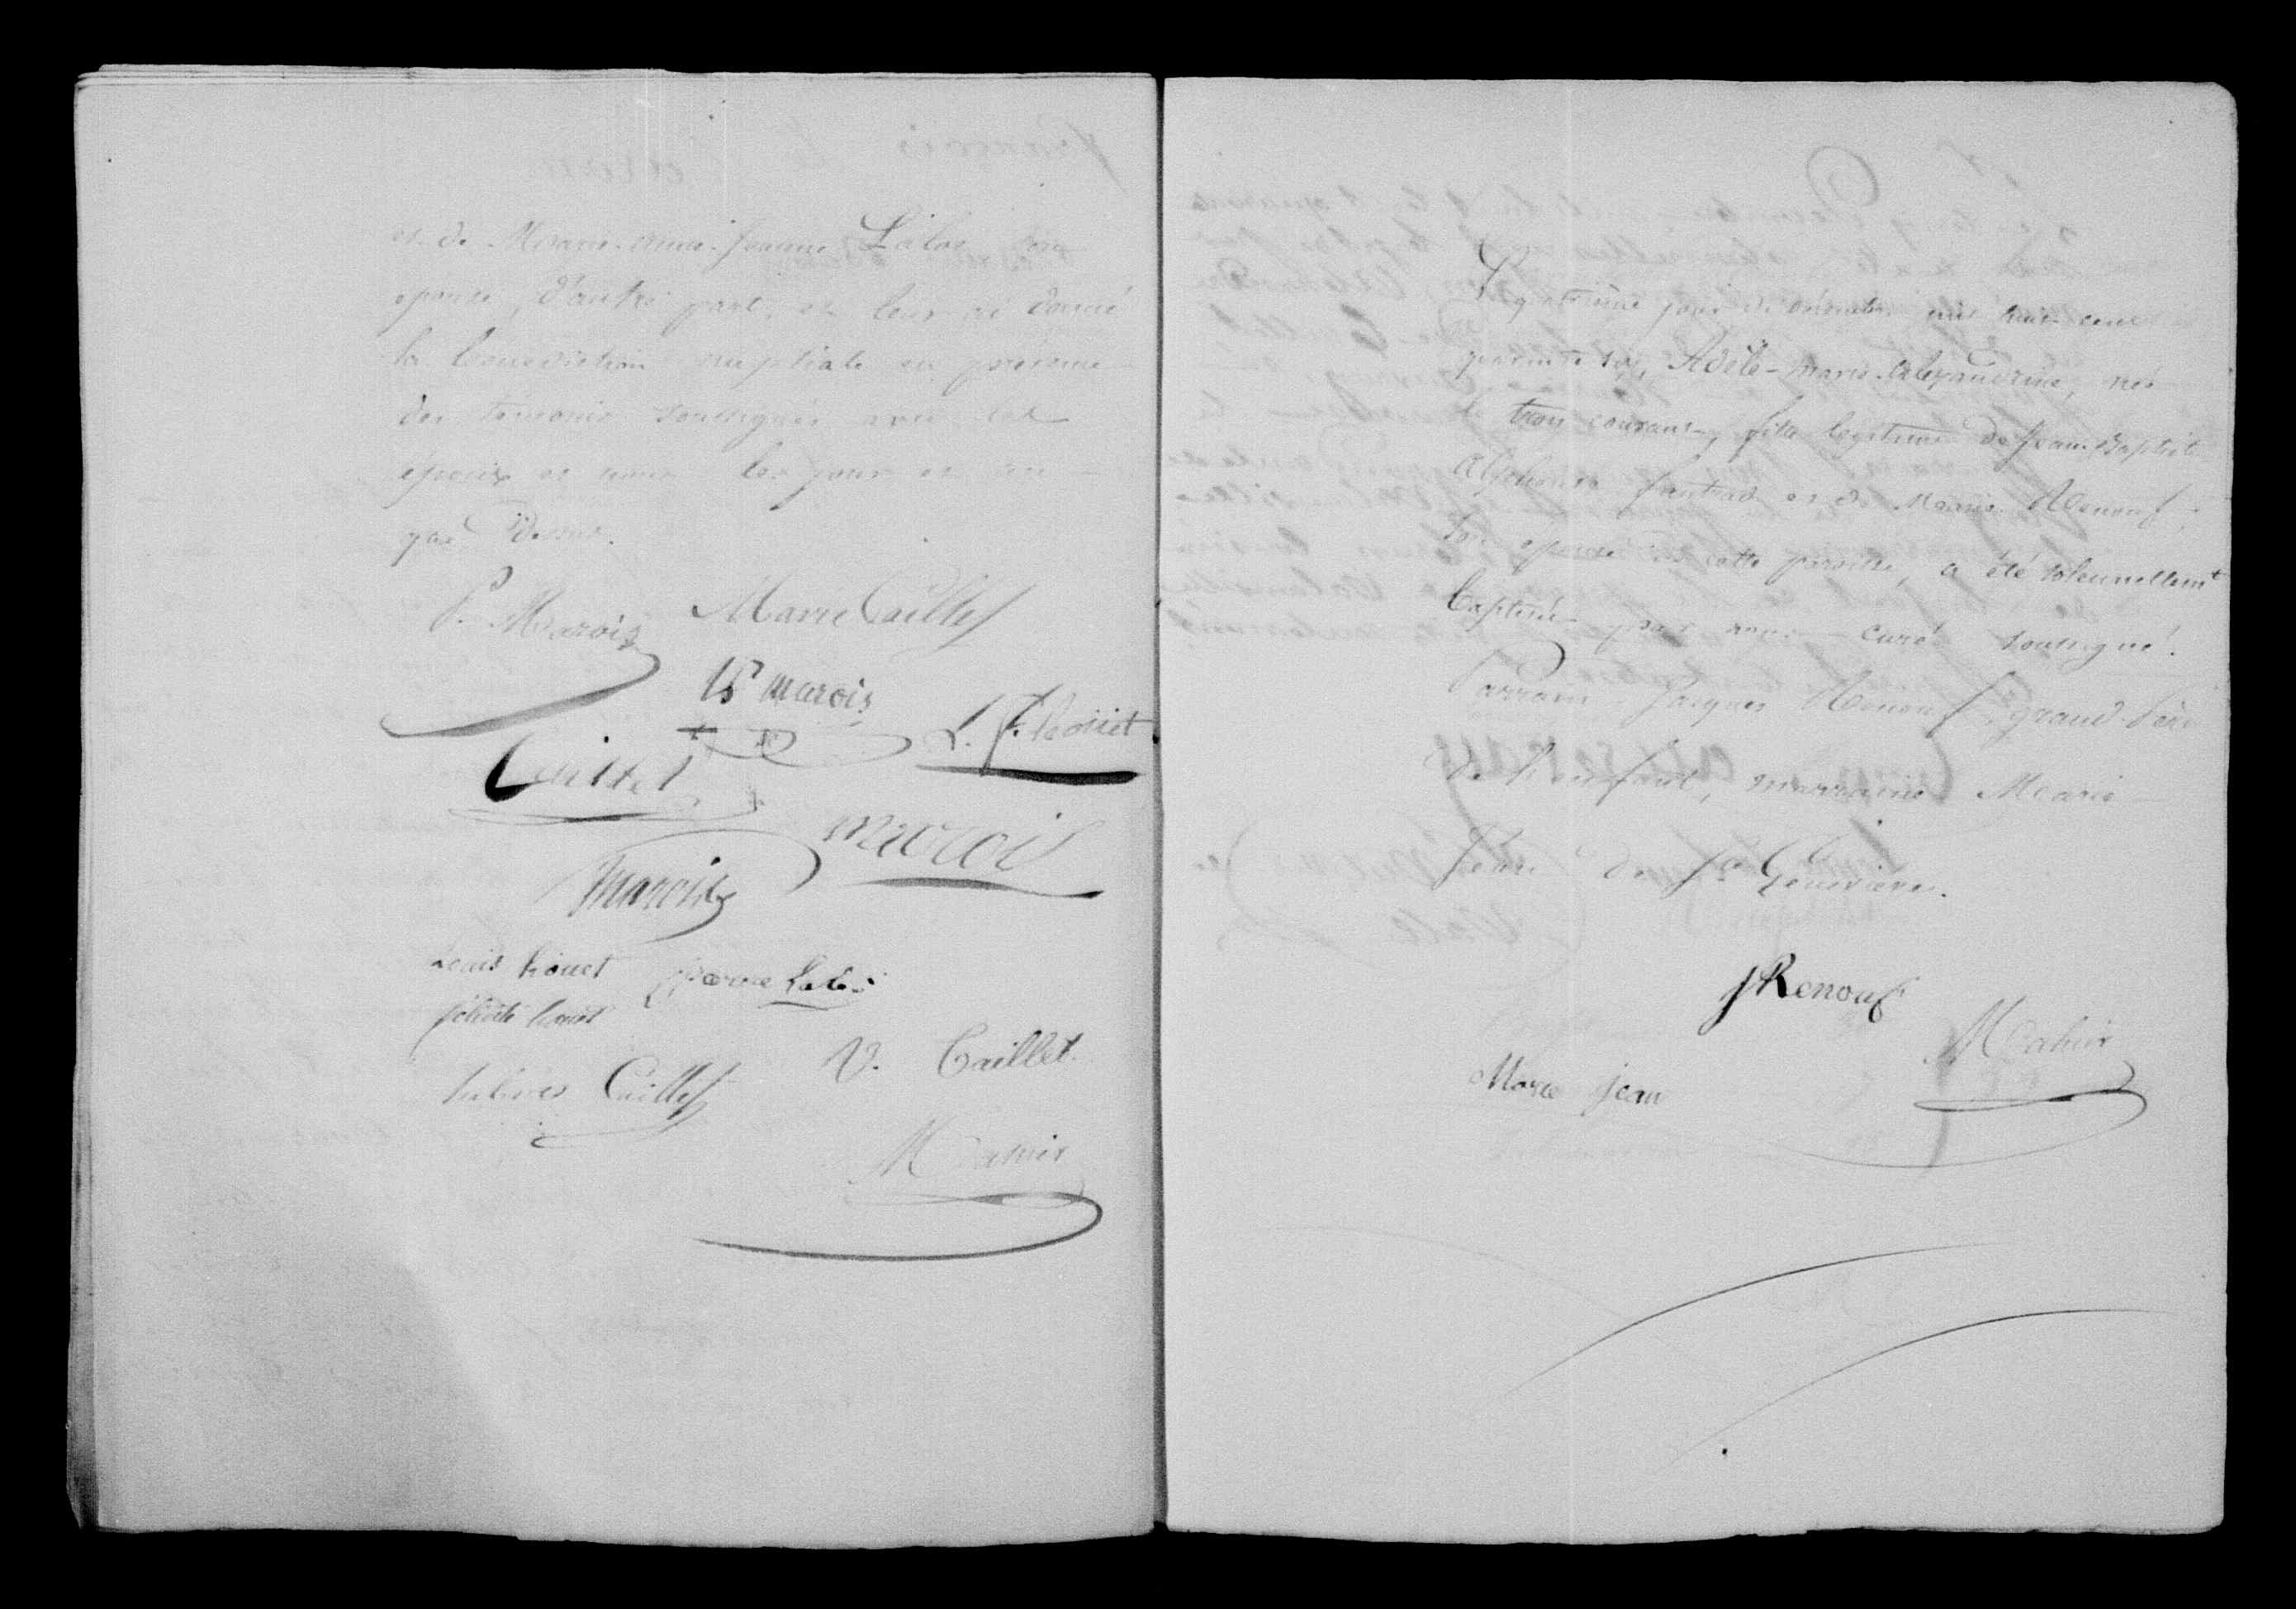 et de Marie-Anne-Jeanne Lalos son
épouse, d'autre part, et leur ai donné
la bénédiction nuptiale en présence
des témoins soussignés avec les
époux et nous les jour et an
que dessus.
P. Marois Marie Caillet
marois
L. F. houet
Caillet
marois
marois
Louis houet
félicité houet
Caillet
V. Caillet
M Cahier
Le quatrième jour de décembre mil huit cent
quarante six, Adèle-Marie-Alexandrine, née
le trois courant, fille légitime de Jean Baptiste
Alphonse et de Marie Renouf,
son épouse de cette paroisse, a été solennellemt
baptisée par nous curé soussigné.
Parrain Jacques Renouf, grand-père
de l'enfant, marraine Marie
Jean de Ste Geneviève.
J Renouf
M Cahier
Marie jean